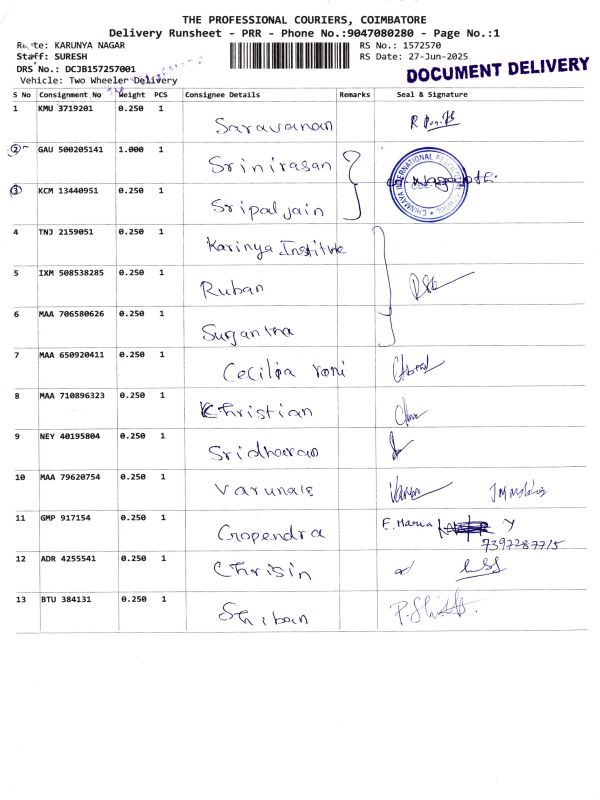 THE PROFESSIONAL COURIERS, COIMBATORE
Delivery Runsheet - PRR - Phone No.:9047080280 - Page No.:1
Route: KARUNYA NAGAR
RS No.: 1572570
Staff: SURESH
RS Date: 27-Jun-2025
DRS No.: DCJB157257001
DOCUMENT DELIVERY
Vehicle: Two Wheeler Delivery
S No Consignment No Weight PCS Consignee Details Remarks Seal & Signature
1 KMU 3719201 0.250 1 Saravanan
2 GAU 500205141 1.000 1 Srinirasan
CHINMAYA INTERNATIONAL RESIDENTIAL SCHOOL
3 KCM 13440951 0.250 1 Sripal jain
4 TNJ 2159051 0.250 1 Karinya Institute
5 IXM 508538285 0.250 1 Ruban
6 MAA 706580626 0.250 1
7 MAA 650920411 0.250 1 Cecilia roni
8 MAA 710896323 0.250 1 Christian
9 NEY 40195804 0.250 1 Sridharan
10 MAA 79620754 0.250 1
11 GMP 917154 0.250 1 Gopendra E. Maria
7397287715
12 ADR 4255541 0.250 1 Chrisin
13 BTU 384131 0.250 1 Shiban